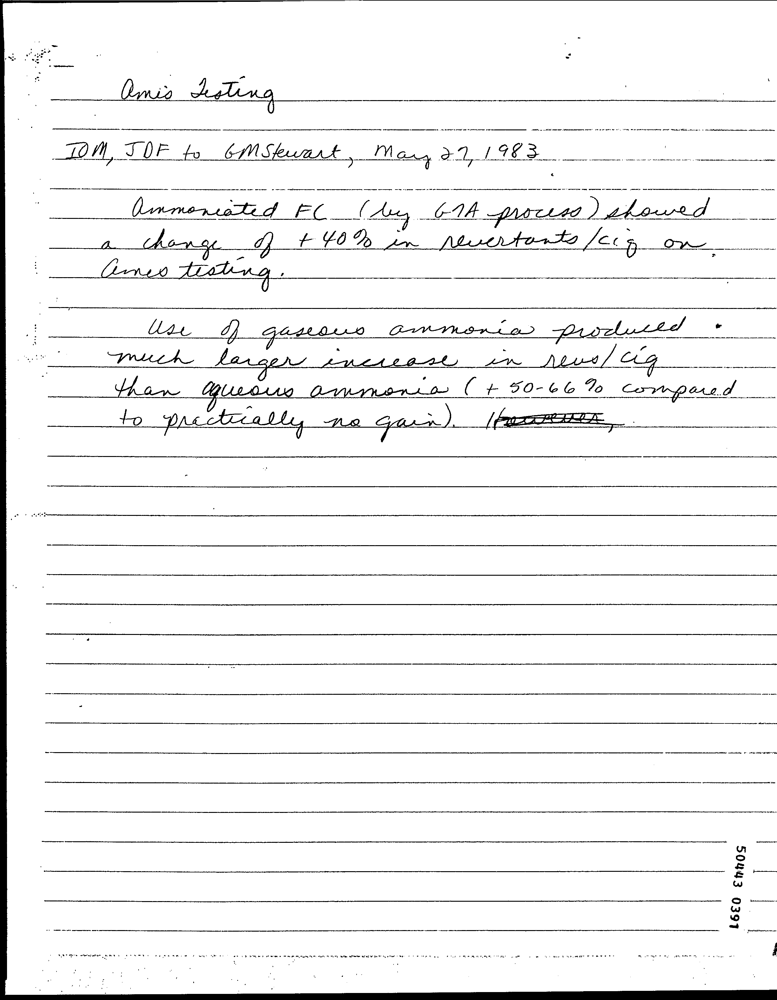 Ames Testing
IOM, JDF to GMStewart, May 27, 1983
Ammoniated FC (by GTA process) showed
a change of +40% in revertants/cig on
Ames testing.
Use of gaseous ammonia produced
much larger increase in revs/cig
than aqueous ammonia (+50-66% compared
to practically no gain). However,
50443 0391